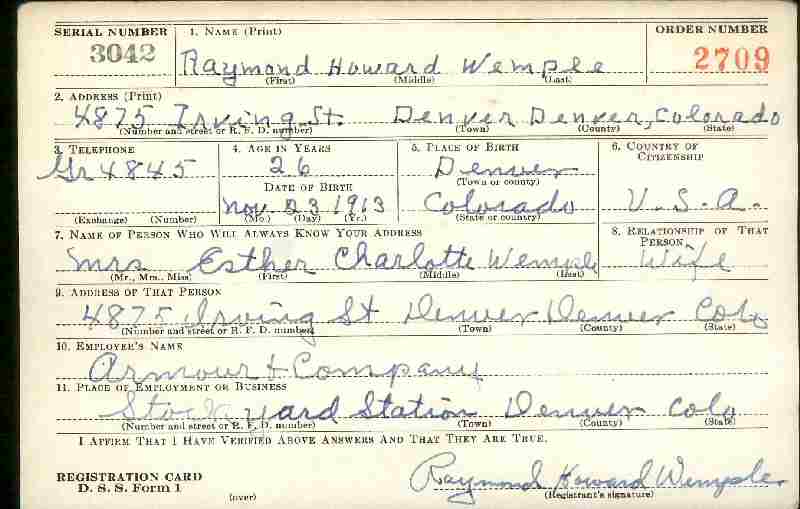 SERIAL NUMBER 1. NAME (Print) ORDER NUMBER
3042 Raymond Howard Wemple 2709
(First) (Middle) (Last)
2. ADDRESS (Print)
4875 Irving St. Denver Denver, Colorado
(Number and street or R. F. D. number) (Town) (County) (State)
3. TELEPHONE 4. AGE IN YEARS 5. PLACE OF BIRTH 6. COUNTRY OF CITIZENSHIP
Gr 4845 26 Denver
(Town or county)
DATE OF BIRTH
Nov. 23 1913 Colorado U.S.A.
(Exchange) (Number) (Mo.) (Day) (Yr.) (State or country)
7. NAME OF PERSON WHO WILL ALWAYS KNOW YOUR ADDRESS 8. RELATIONSHIP OF THAT PERSON
Mrs Esther Charlotte Wemple Wife
(Mr., Mrs., Miss) (First) (Middle) (Last)
9. ADDRESS OF THAT PERSON
4875 Irving St Denver Denver Colo
(Number and street or R. F. D. number) (Town) (County) (State)
10. EMPLOYER'S NAME
Armour & Company
11. PLACE OF EMPLOYMENT OR BUSINESS
Stock yard Station Denver Colo
(Number and street or R. F. D. number) (Town) (County) (State)
I AFFIRM THAT I HAVE VERIFIED ABOVE ANSWERS AND THAT THEY ARE TRUE.
REGISTRATION CARD Raymond Howard Wemple
D. S. S. Form 1 (over) (Registrant's signature)